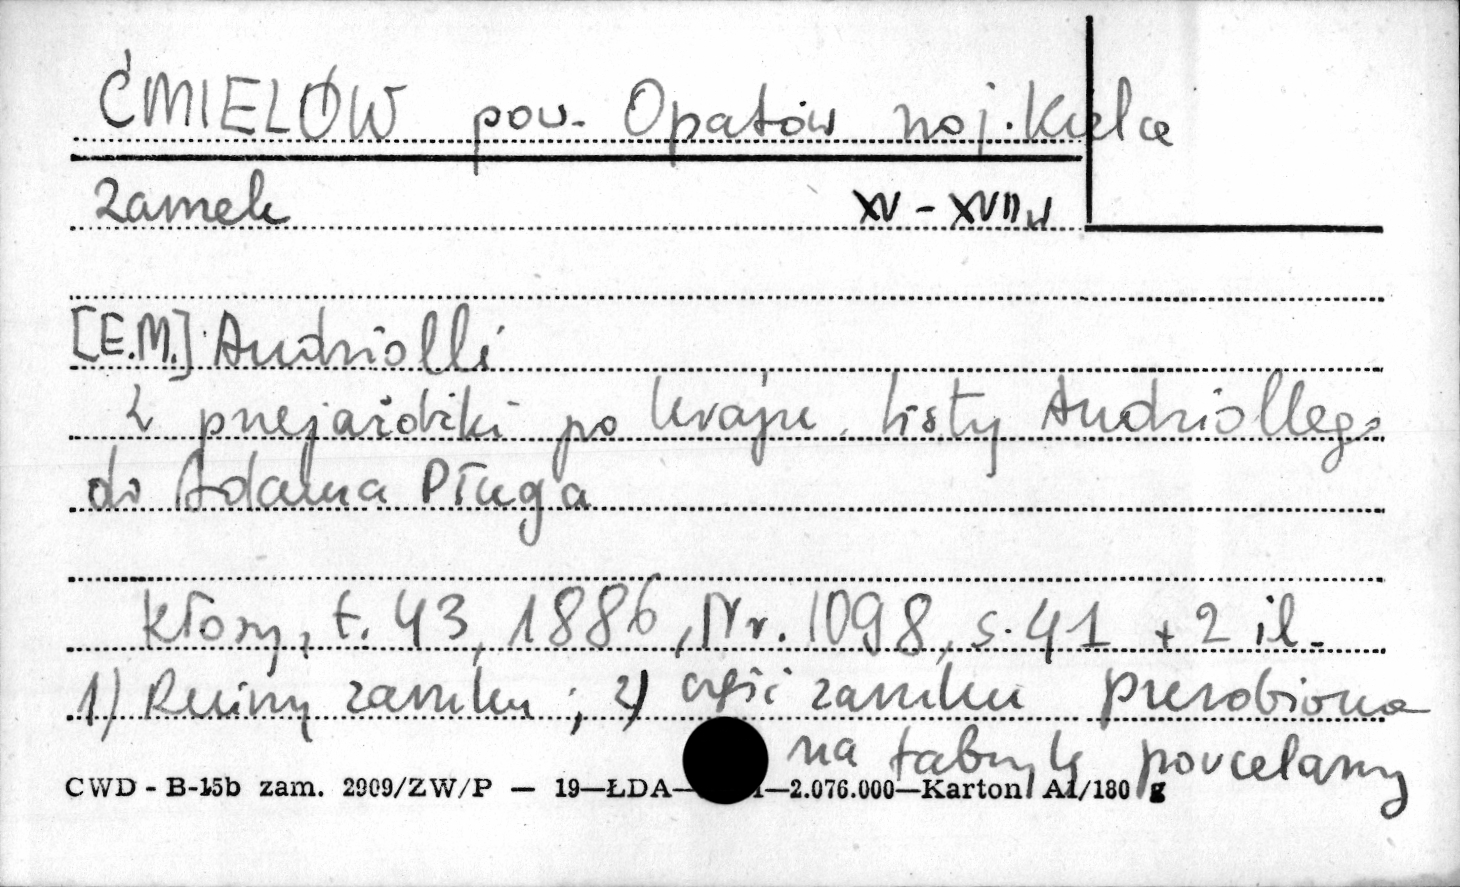 ĆMIELÓW pow. Opatów woj. Kielce
zamek XV - XVII w
[E.M.] Andriolli
Z przejażdżki po kraju. Listy Andriollego
do Adama Pługa
Kłosy, t. 43, 1886, Nr. 1098, s. 41 + 2 il.
1) Ruiny zamku ; 2) część zamku przerobiona
na fabrykę porcelany
CWD - B-15b zam. 2909/ZW/P — 19—ŁDA— —2.076.000—Karton A1/180 g